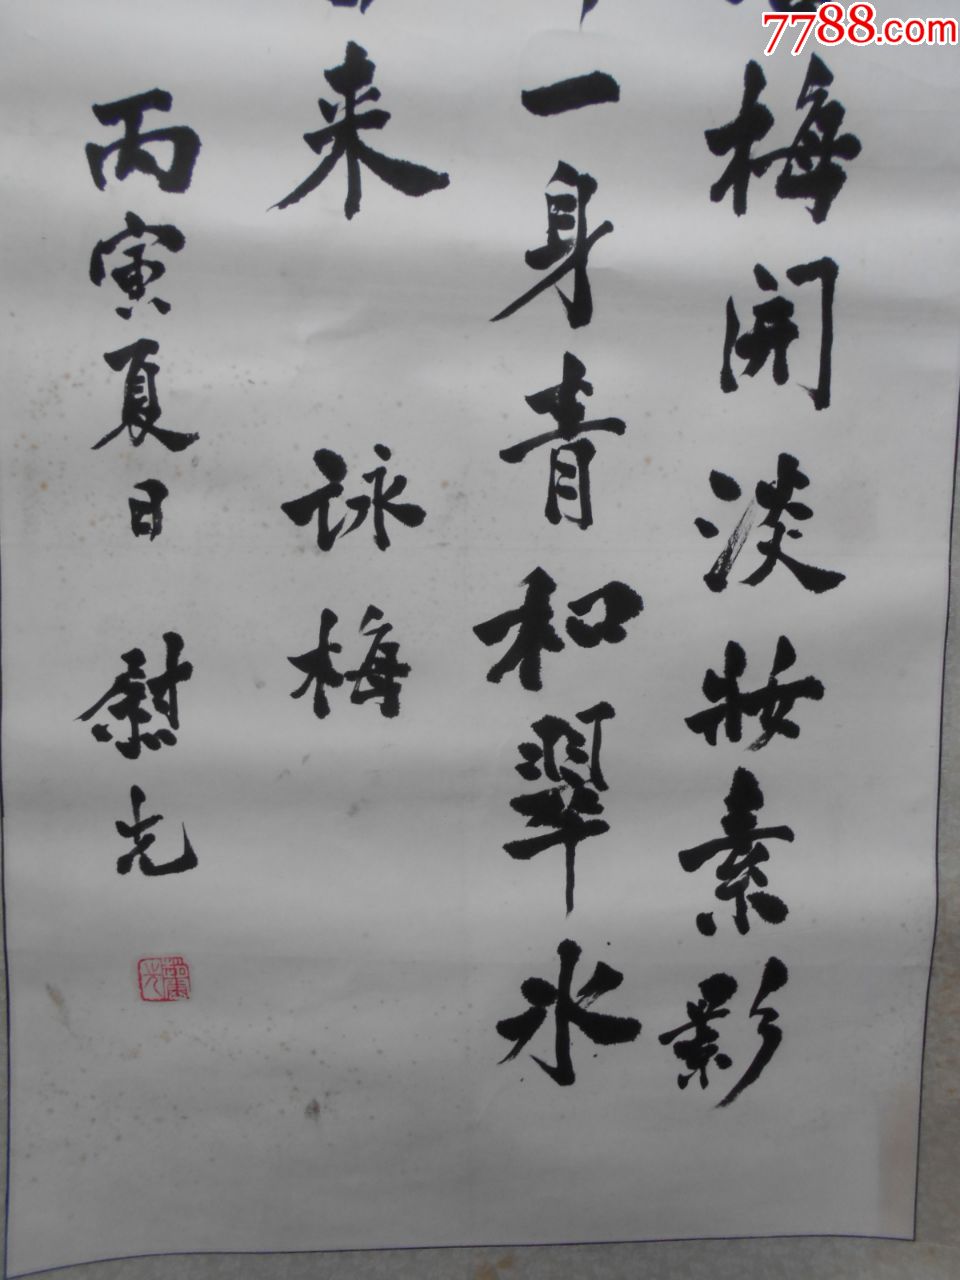 7788.com
梅開淡妝素影
一身青和翠水
来 詠梅
丙寅夏日 慰光